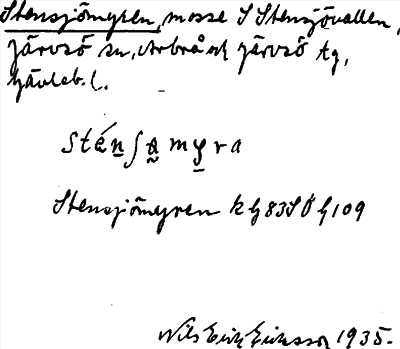 Stensjömyren, mosse S Stensjövallen,
Järvsö sn, Arbrå o Järvsö tg,
Gävleb. l.
sténʃa̰myra
Stensjömyren k G 83 S Ö G 109
Nils Erik Eriksson 1935.